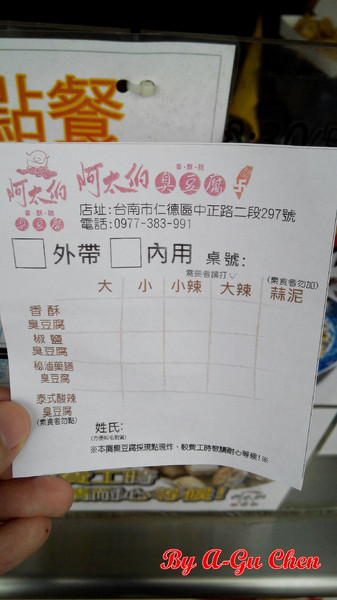 點餐
香·酥·脆
阿太伯
臭豆腐
香·酥·脆
阿太伯臭豆腐
店址:台南市仁德區中正路二段297號
電話:0977-383-991
外帶 內用 桌號:
需要者請打✓
(素食者勿加)
大 小 小辣 大辣 蒜泥
香酥
臭豆腐
椒鹽
臭豆腐
秘滷藥膳
臭豆腐
泰式酸辣
臭豆腐
(素食者勿點)
姓氏:
(方便叫名取餐)
※本攤臭豆腐採現點現炸、較費工時敬請耐心等候!※
By A-Gu Chen